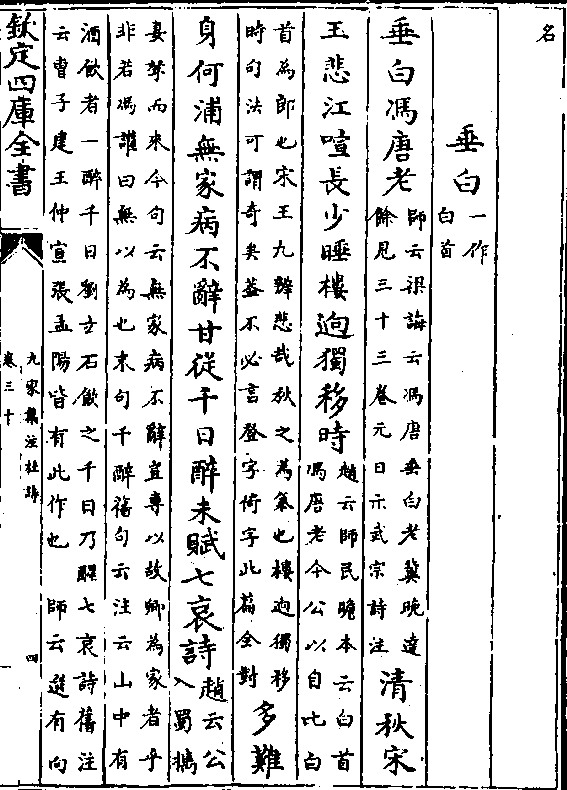 名
垂白一作
白首
垂白馮唐老師云梁誨云馮唐垂白老冀晚達
餘見三十三卷元日示武宗詩注
清秋宋
玉悲江喧長少睡樓逈獨移時趙云師民瞻本云白首
馮唐老今公以自比白
首為郎也宋玉九辯悲哉秋之為氣也樓逈獨移
時句法可謂奇矣葢不必言登字倚字此篇全對
多難
身何浦無家病不辭甘從千日醉未賦七哀詩趙云公
入蜀携
妻孥而來今句云無家病不辭豈專以故鄉為家者乎
非若馮諼曰無以為也末句千醉舊句云注云山中有
酒飲者一醉千日劉玄石飲之千日乃醒七哀詩舊注
云曹子建王仲宣張孟陽皆有此作也 師云選有向
欽定四庫全書
九家集注杜詩
卷三十
四